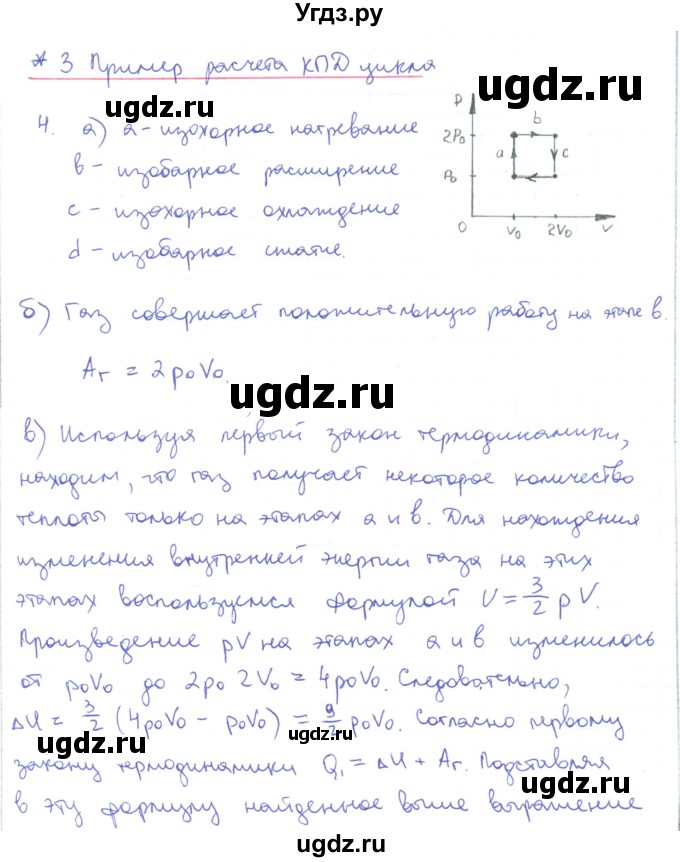 Угдз.ру
* 3 Пример расчета КПД цикла
ugdz.ru
4. а) a - изохорное нагревание
b - изобарное расширение
c - изохорное охлаждение
d - изобарное сжатие.
P
2P₀
P₀
0
V₀
2V₀
V
a
b
c
ugdz.ru
ugdz.ru
б) Газ совершает положительную работу на этапе b.
Aг = 2p₀V₀.
ugdz.ru
в) Используя первый закон термодинамики,
находим, что газ получает некоторое количество
теплоты только на этапах a и b. Для нахождения
изменения внутренней энергии газа на этих
этапах воспользуемся формулой U = 3/2 pV.
Произведение pV на этапах a и b изменилось
от p₀V₀ до 2p₀ 2V₀ = 4p₀V₀. Следовательно,
ΔU = 3/2 (4p₀V₀ - p₀V₀) = 9/2 p₀V₀. Согласно первому
ugdz.ru
ugdz.ru
закону термодинамики Q₁ = ΔU + Aг. Подставляя
в эту формулу найденное выше выражение
ugdz.ru
ugdz.ru